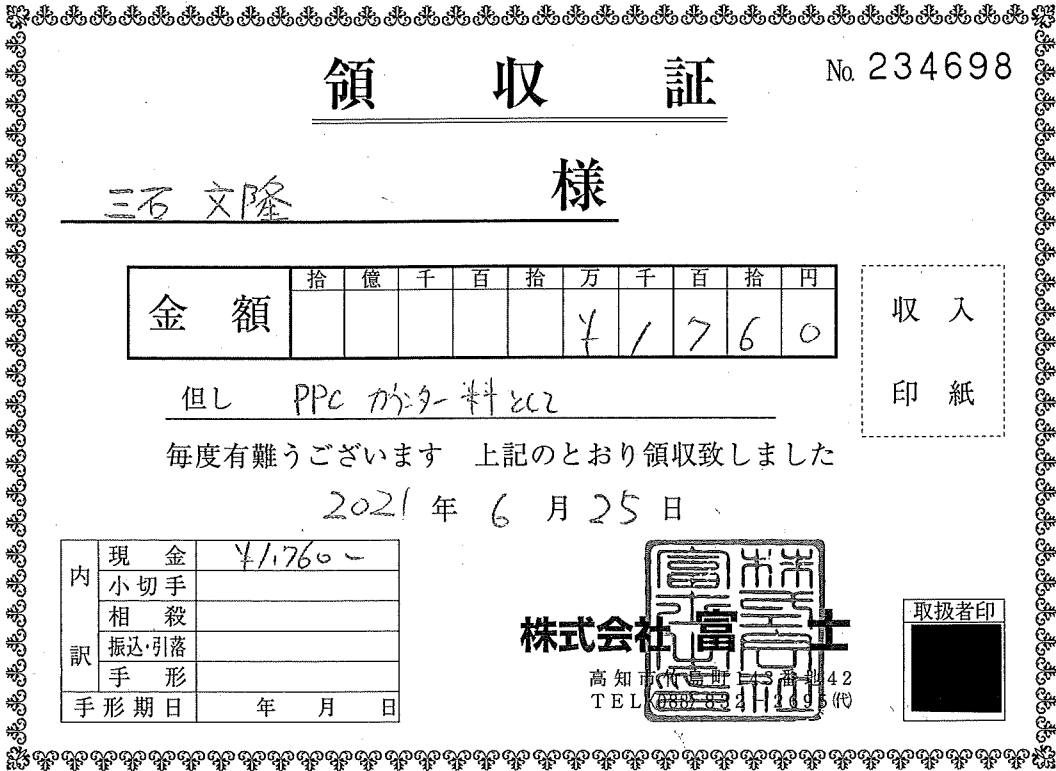 領収証
No. 234698
三石 文隆 様
金額
拾 億 千 百 拾 万 千 百 拾 円
¥ 1 7 6 0
収入
印紙
但し PPC カウンター料として
毎度有難うございます 上記のとおり領収致しました
2021年6月25日
内訳
現金 ¥1,760-
小切手
相殺
振込・引落
手形
手形期日 年 月 日
株式会社 富士
高知市竹島町143番地42
TEL(088)832-2695(代)
取扱者印